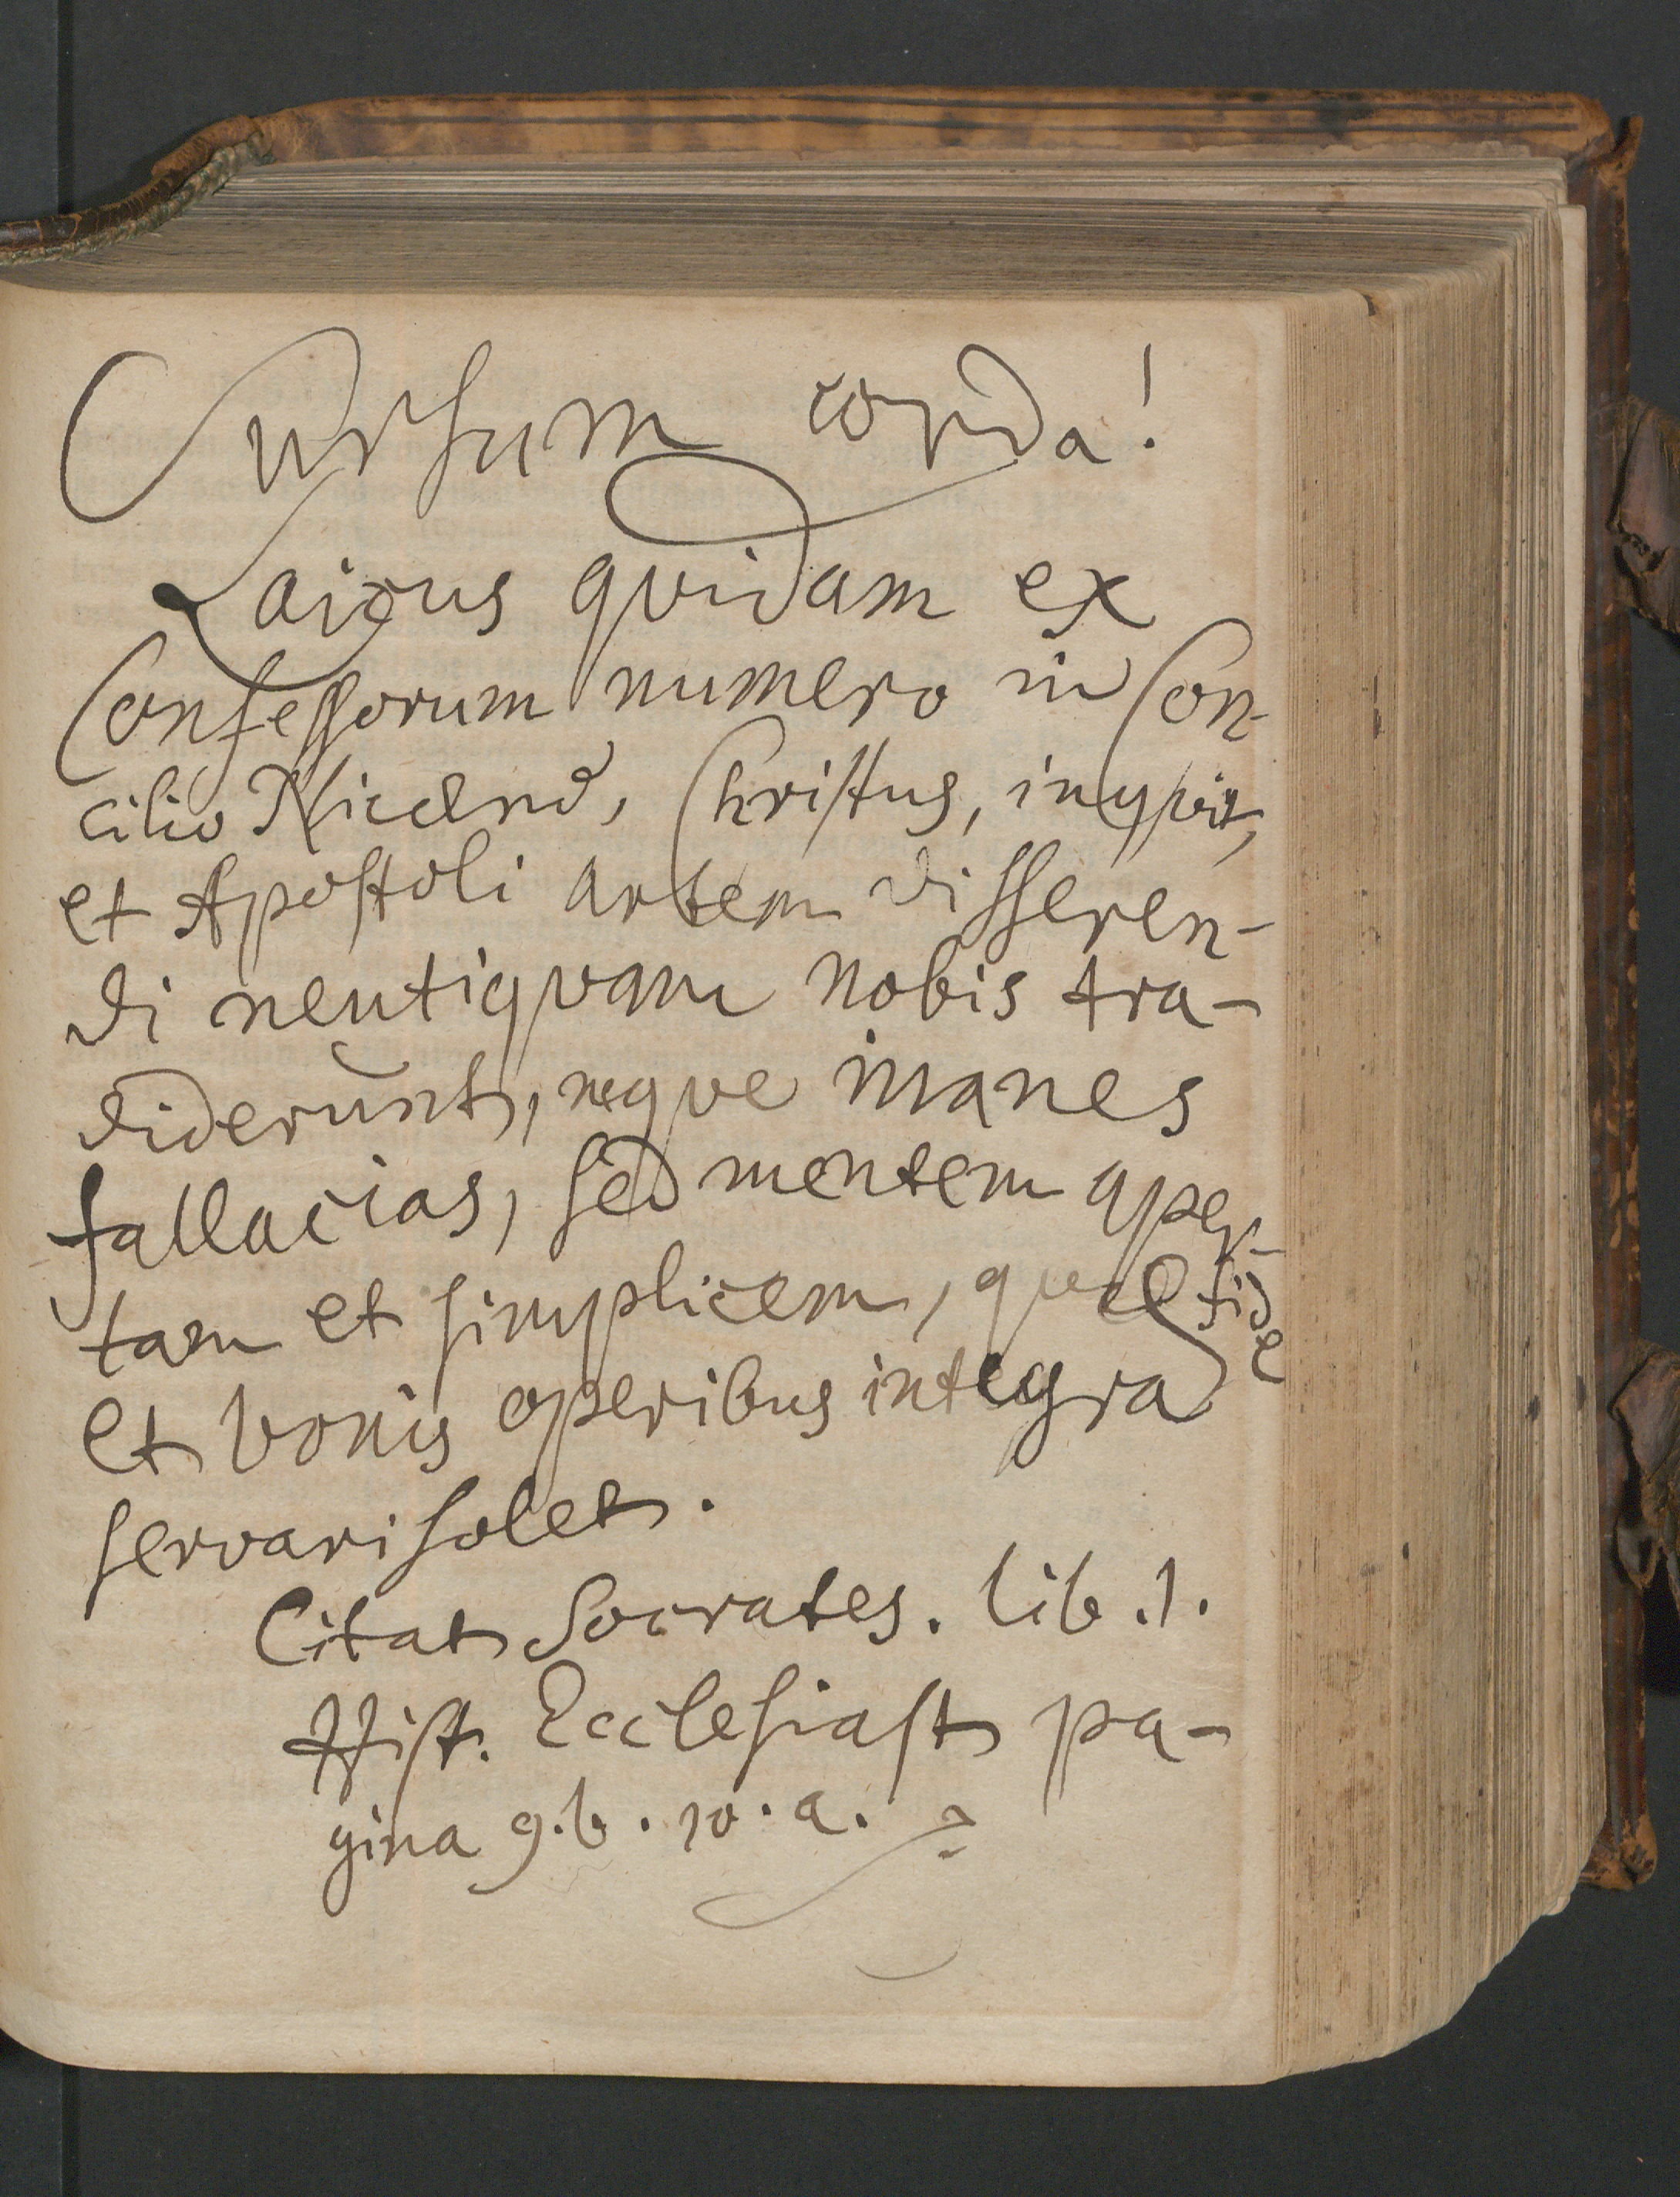 Sursum corda!
Laicus quidam ex
Confessorum numero in Con-
cilio Nicaeno, Christus, inquit,
et Apostoli artem disseren-
di neutiquam nobis tra-
diderunt, neque inanes
fallacias, sed mentem aper-
tam et simplicem, quae fide
et bonis operibus integra
servari solet.
Citat Socrates. lib. 1.
Hist. Ecclesiast pa-
gina 9. b. 10. a.